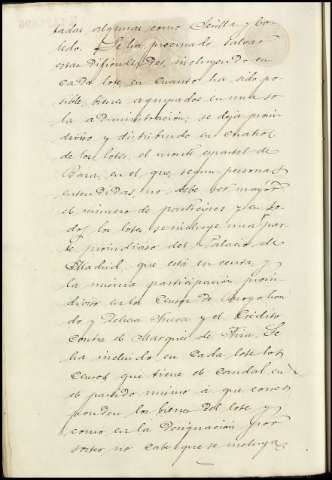 tadas algunas como Sevilla y To-
ledo. Se ha procurado salvar
estas dificultades, incluyendo en
cada lote, en cuanto ha sido po-
sible, bienes agrupados en una so-
la administracion; se deja proin-
diviso y distribuido en cuatro
de los lotes, el monte espartal de
Baza, en el que, segun personas
entendidas, no debe ser mayor
el número de participes y en to-
dos los lotes se incluye una par-
te proindiviso del Palacio de
Madrid, que está en venta, y
la misma participacion proin-
diviso en los Censos de
do y Nueva y el Crédito
contra el Marqués de Se
ha incluido en cada lote los
censos que tiene el caudal en
el partido mismo a que corres-
ponden los bienes del lote y
como en la designacion por
sorteo no cabe que se incluya